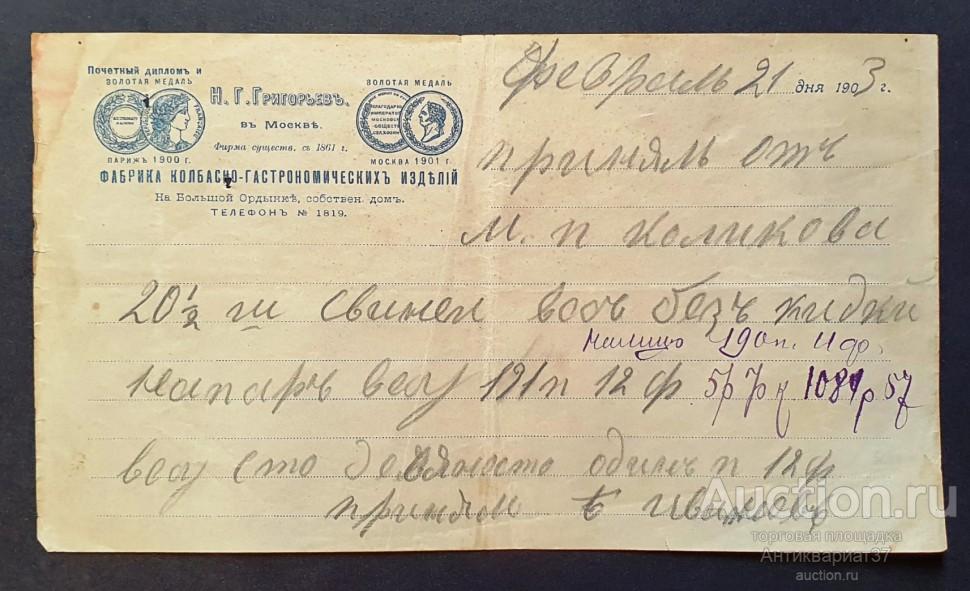 Почетный дипломъ и
ЗОЛОТАЯ МЕДАЛЬ
ПАРИЖЪ 1900 г.
Н. Г. ГРИГОРЬЕВЪ.
въ Москвѣ.
Фирма существ. съ 1861 г.
ЗОЛОТАЯ МЕДАЛЬ
МОСКВА 1901 г.
ФАБРИКА КОЛБАСНО-ГАСТРОНОМИЧЕСКИХЪ ИЗДѢЛІЙ
На Большой Ордынкѣ, собствен. домъ.
ТЕЛЕФОНЪ № 1819.
Февраль 21 дня 1903 г.
принялъ отъ
М. П
20 1/2 ш свинеи безъ
190 п. 11 ф.
весу 191 п 12 ф 5р 1081р 57
весу сто девяносто одинъ п 12 ф
Ивановъ
Auction.ru
торговая площадка
Антиквариат37
auction.ru